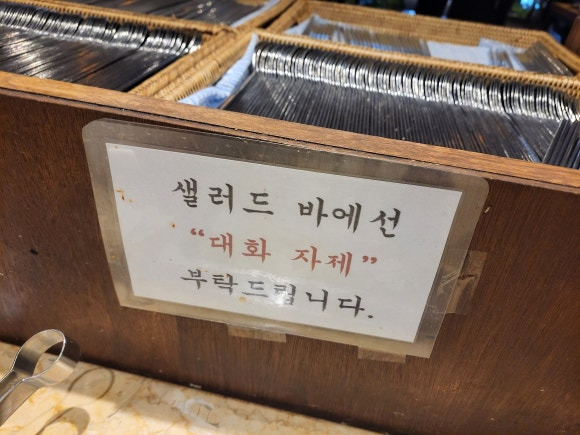 샐러드 바에선
“대화 자제”
부탁드립니다.